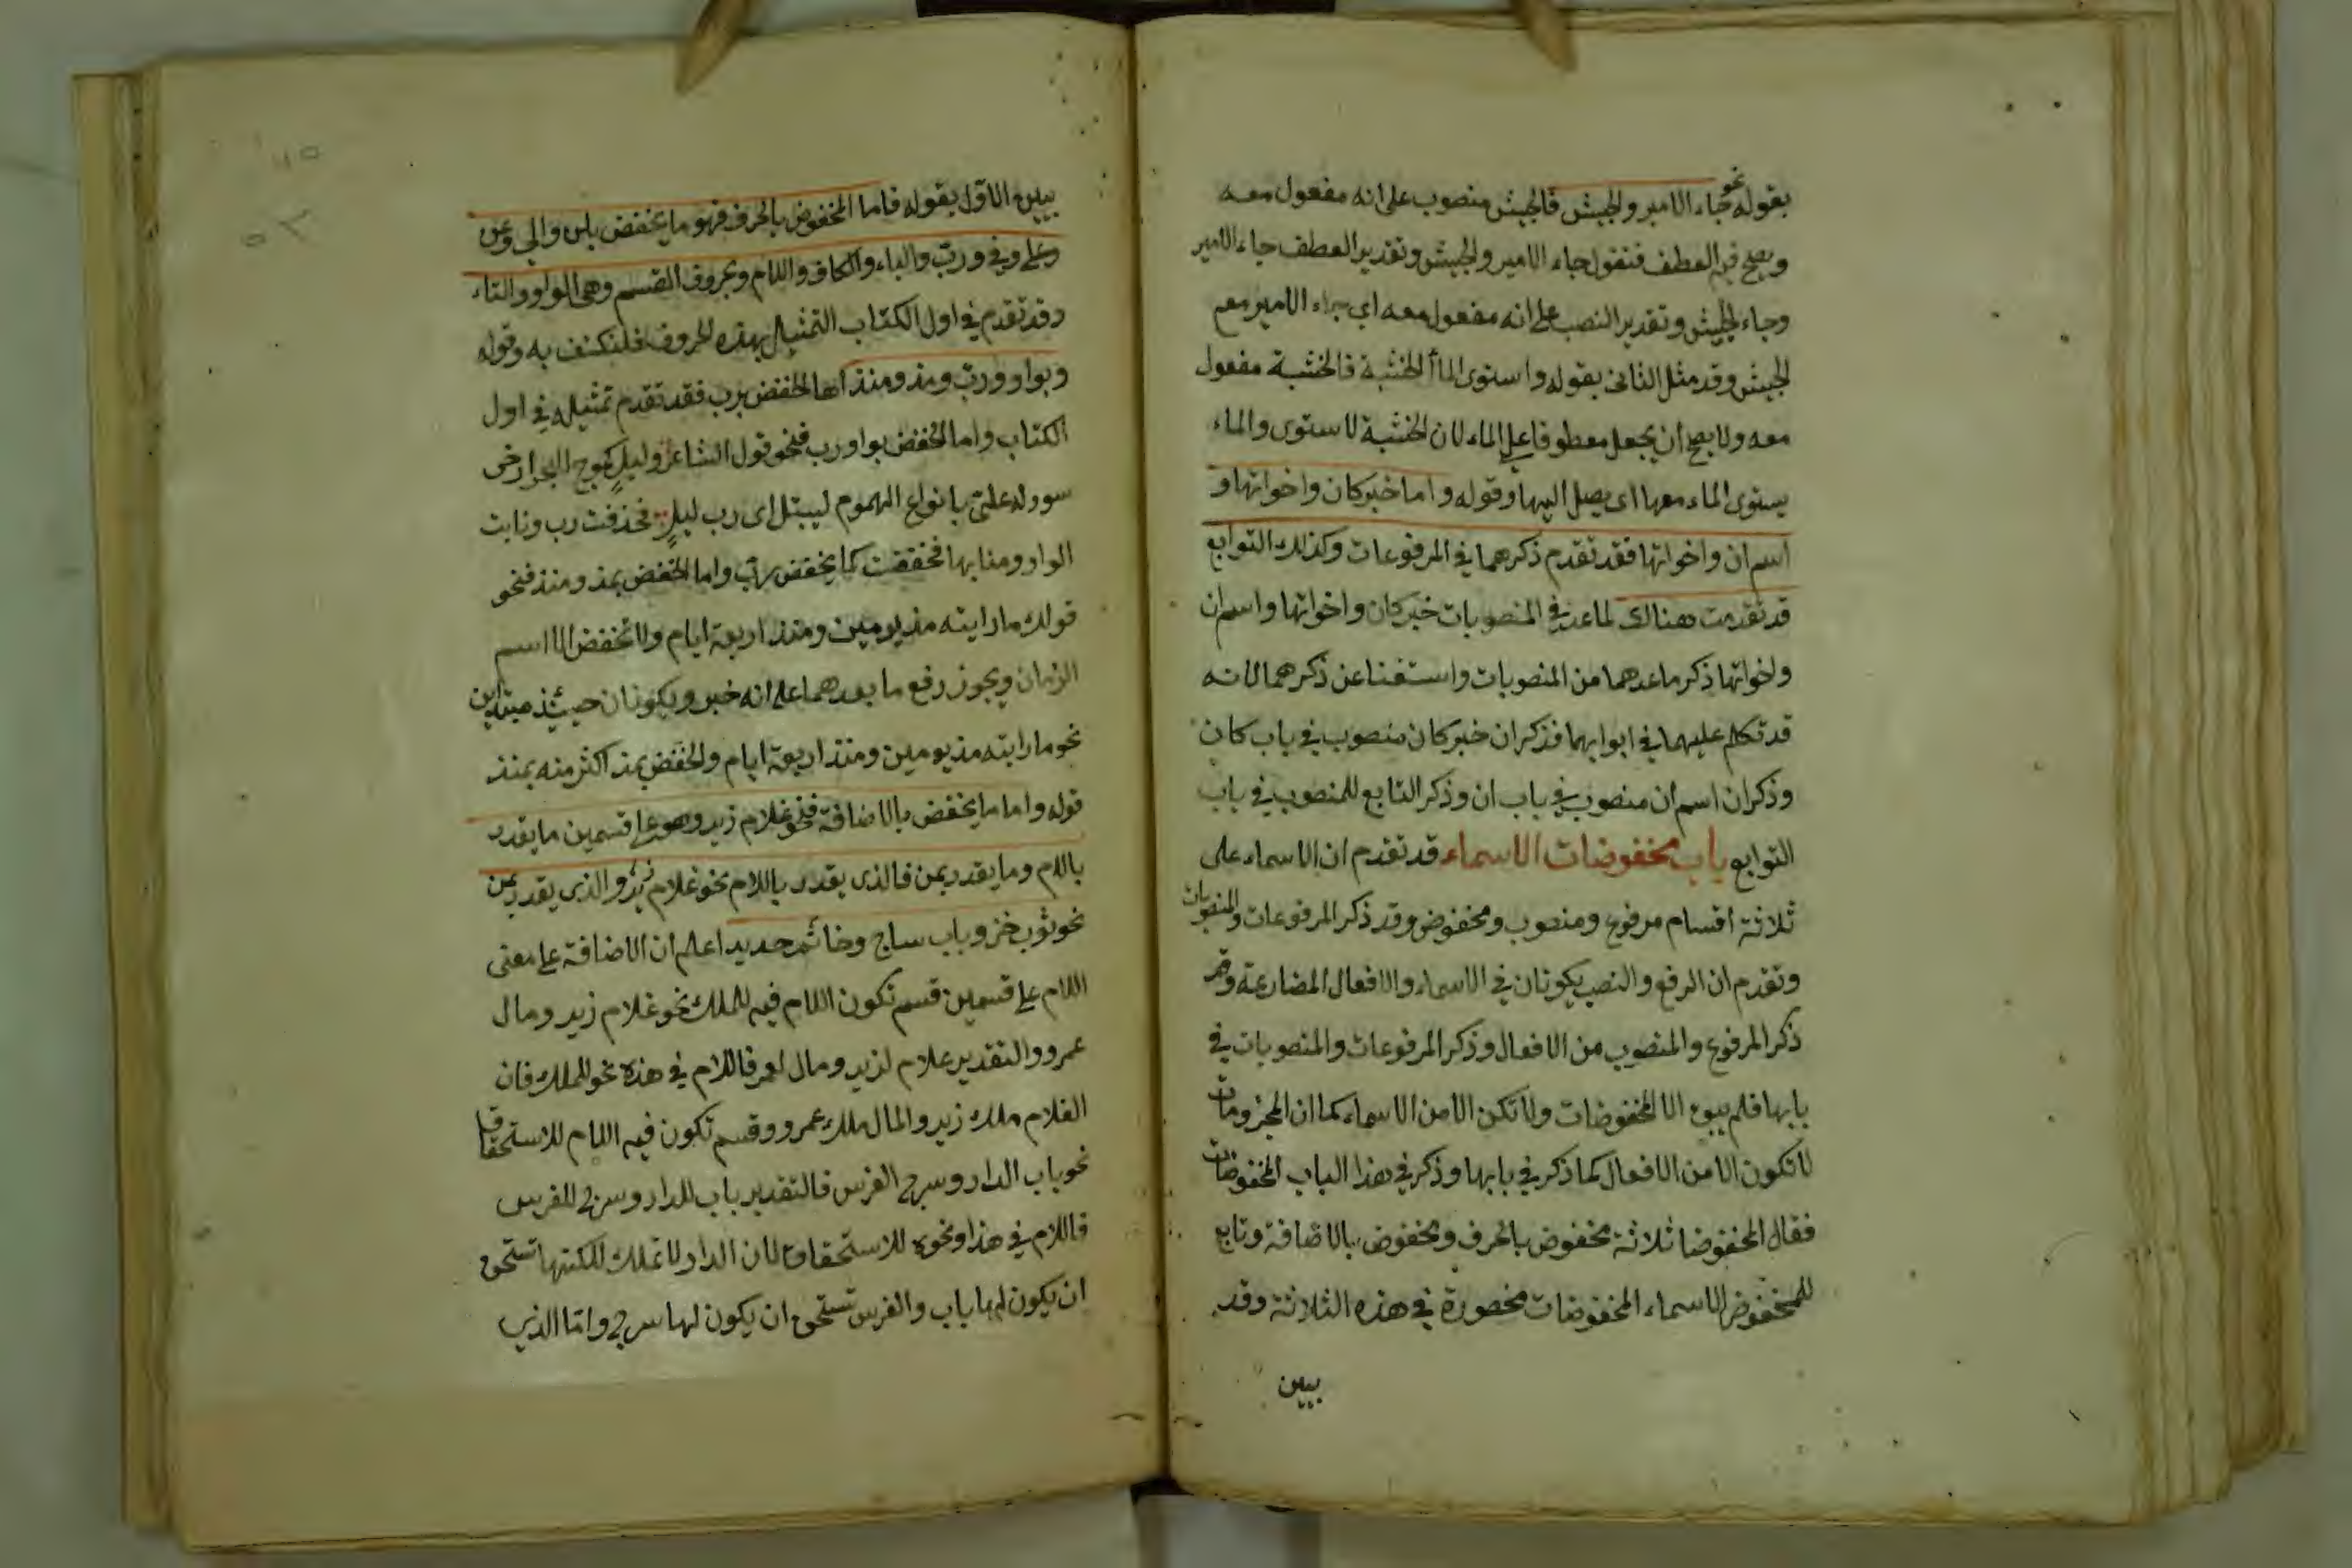 بقوله نحو جاء الامير والجيش فالجيش منصوب على انه مفعول معه
ويصح فيه العطف فتقول جاء الامير والجيش وتقدير العطف جاء الامير
وجاء الجيش وتقدير النصب على انه مفعول معه اي جاء الامير مع
الجيش وقد مثل الثانى بقوله واستوى الماأ الخشبة فالخشبة مفعول
معه ولا يصح ان يجعل معطوفا على الماء لان الخشبة لا ستوى والماء
يستوى الماء معها اى يصل اليها وقوله واما خبر كان واخواتها و
اسم ان واخواتها فقد تقدم ذكرهما في المرفوعات وكذلك التوابع
قد تقدمت هنالك لما عد في المنصوبات خبر كان واخواتها واسم ان
واخواتها ذكر ماعدهما من المنصوبات واستغنا عن ذكرهما لانه
قد تكلم عليهما في ابوابهما فذكر ان خبر كان منصوب في باب كان
وذكر ان اسم ان منصوب في باب ان وذكر التابع للمنصوب في باب
التوابع باب مخفوضات الاسماء قد تقدم ان الاسماء على
ثلاثة اقسام مرفوع ومنصوب ومخفوض وقد ذكر المرفوعات والمنصوبات
وتقدم ان الرفع والنصب يكونان في الاسماء والافعال المضارعة وقد
ذكر المرفوع والمنصوب من الافعال وذكر المرفوعات والمنصوبات في
بابها فلم يبق الا المخفوضات ولا تكن الا من الاسماء كما ان المجزومات
لا تكون الا من الافعال كما ذكر في بابها وذكر في هذا الباب المخفوضات
فقال المخفوضا ثلاثة مخفوض بالحرف ومخفوض بالاضافة وتابع
للمخفوض الاسماء المخفوضات محصورة في هذه الثلاثة وقد
بيين
بيين الاول بقوله فاما المخفوض بالحرف فهو ما يخفض بمن والى وعن
وعلى وفي ورب والباء والكاف واللام وبحروف القسم وهى الواو والتاء
وقد تقدم في اول الكتاب التمثيل بهذه الحروف فلنكتف به وقوله
وبواو ورب ومذ ومنذ اما الخفض برب فقد تقدم تمثيله في اول
الكتاب واما الخفض بواو رب فنحو قول الشاعر وليل كموج البحر ارخى
سدوله على بانواع الهموم ليبتل اى رب ليل فحذفت رب ونابت
الواو ومنابها فخفضت كما يخفض برب واما الخفض بمذ ومنذ فنحو
قولك ما رايته مذ يومين ومنذ اربعة ايام ولا تخفض الا اسم
الزمان ويجوز رفع ما بعدهما على انه خبر ويكونان حينئذ مبتداين
نحو ما رايته مذ يومين ومنذ اربعة ايام والخفض بمذ اكثر منه بمنذ
قوله واما ما يخفض بالاضافة فنحو غلام زيد وهو على قسمين ما يقدر
باللام وما يقدر بمن فالذى يقدر باللام نحو غلام زيد والذى يقدر بمن
نحو ثوب خز وباب ساج وخاتم حديد اعلم ان الاضافة على معنى
اللام على قسمين قسم تكون اللام فيه للملك نحو غلام زيد ومال
عمرو والتقدير غلام لزيد ومال لعمر فاللام في هذه نحو للملك فان
الغلام ملك زيد والمال ملك عمرو وقسم تكون فيه اللام للاستحقاق
نحو باب الدار وسرج الفرس فالتقدير باب للدار وسرج للفرس
فاللام في هذا ونحوه للاستحقاق لان الدار لا تملك لكنها تستحق
ان يكون لها باب والفرس تستحق ان يكون لها سرج واما الذي